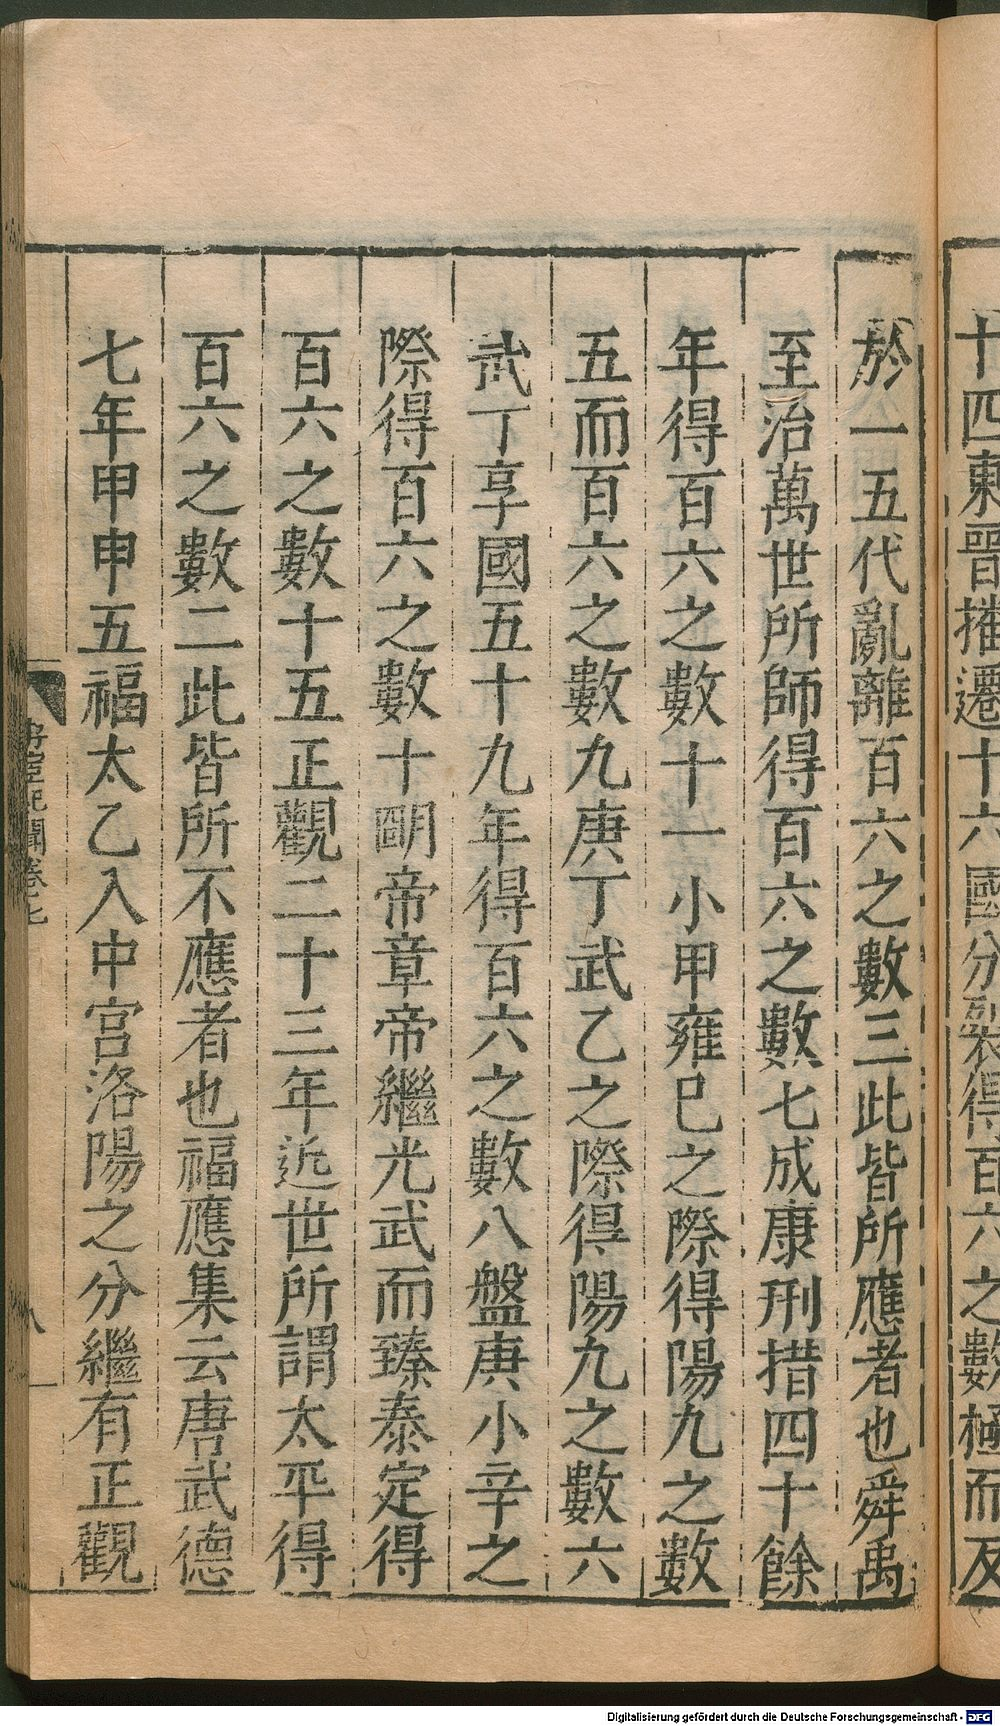 十四東晉播遷十六國分裂得百六之數極而反
於一五代亂離百六之數三此皆所應者也舜禹
至治萬世所師得百六之數七成康刑措四十餘
年得百六之數十一小甲雍巳之際得陽九之數
五而百六之數九庚丁武乙之際得陽九之數六
武丁享國五十九年得百六之數八盤庚小辛之
際得百六之數十明帝章帝繼光武而臻泰定得
百六之數十五正觀二十三年近世所謂太平得
百六之數二此皆所不應者也福應集云唐武德
七年甲申五福太乙入中宮洛陽之分繼有正觀
聞卷七
八
Digitalisierung gefördert durch die Deutsche Forschungsgemeinschaft - DFG